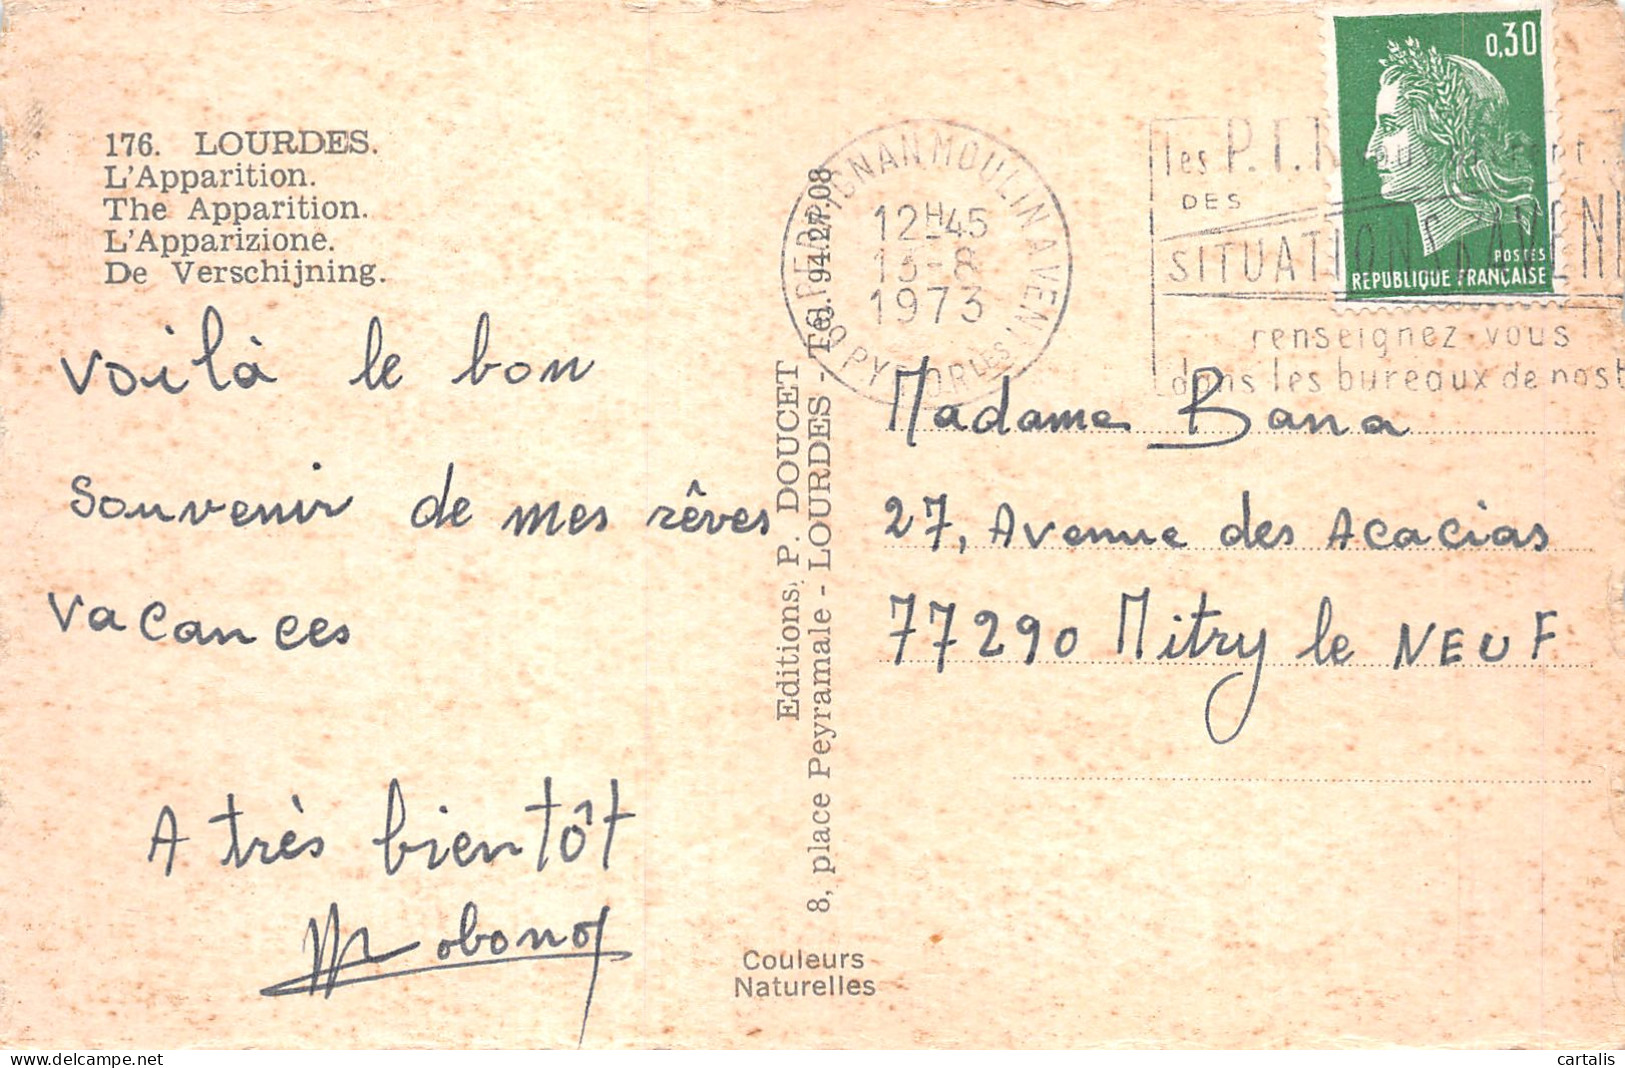 176. LOURDES.
L'Apparition.
The Apparition.
L'Apparizione.
De Verschijning.
Voilà le bon
Souvenir de mes rêves
Vacances
A très bientôt
Editions, P. DOUCET
8, place Peyramale - LOURDES - Tél. 94.27.08
Couleurs
Naturelles
PERPIGNAN MOULIN A VENT
PYR. ORLES
12H45
13-8
1973
les P.T.T.
DES
SITUATIONS D'AVENI
renseignez-vous
dans les bureaux de post
0,30
POSTES
REPUBLIQUE FRANÇAISE
Madame Bana
27, Avenue des Acacias
77290 Mitry le NEUF
cartalis